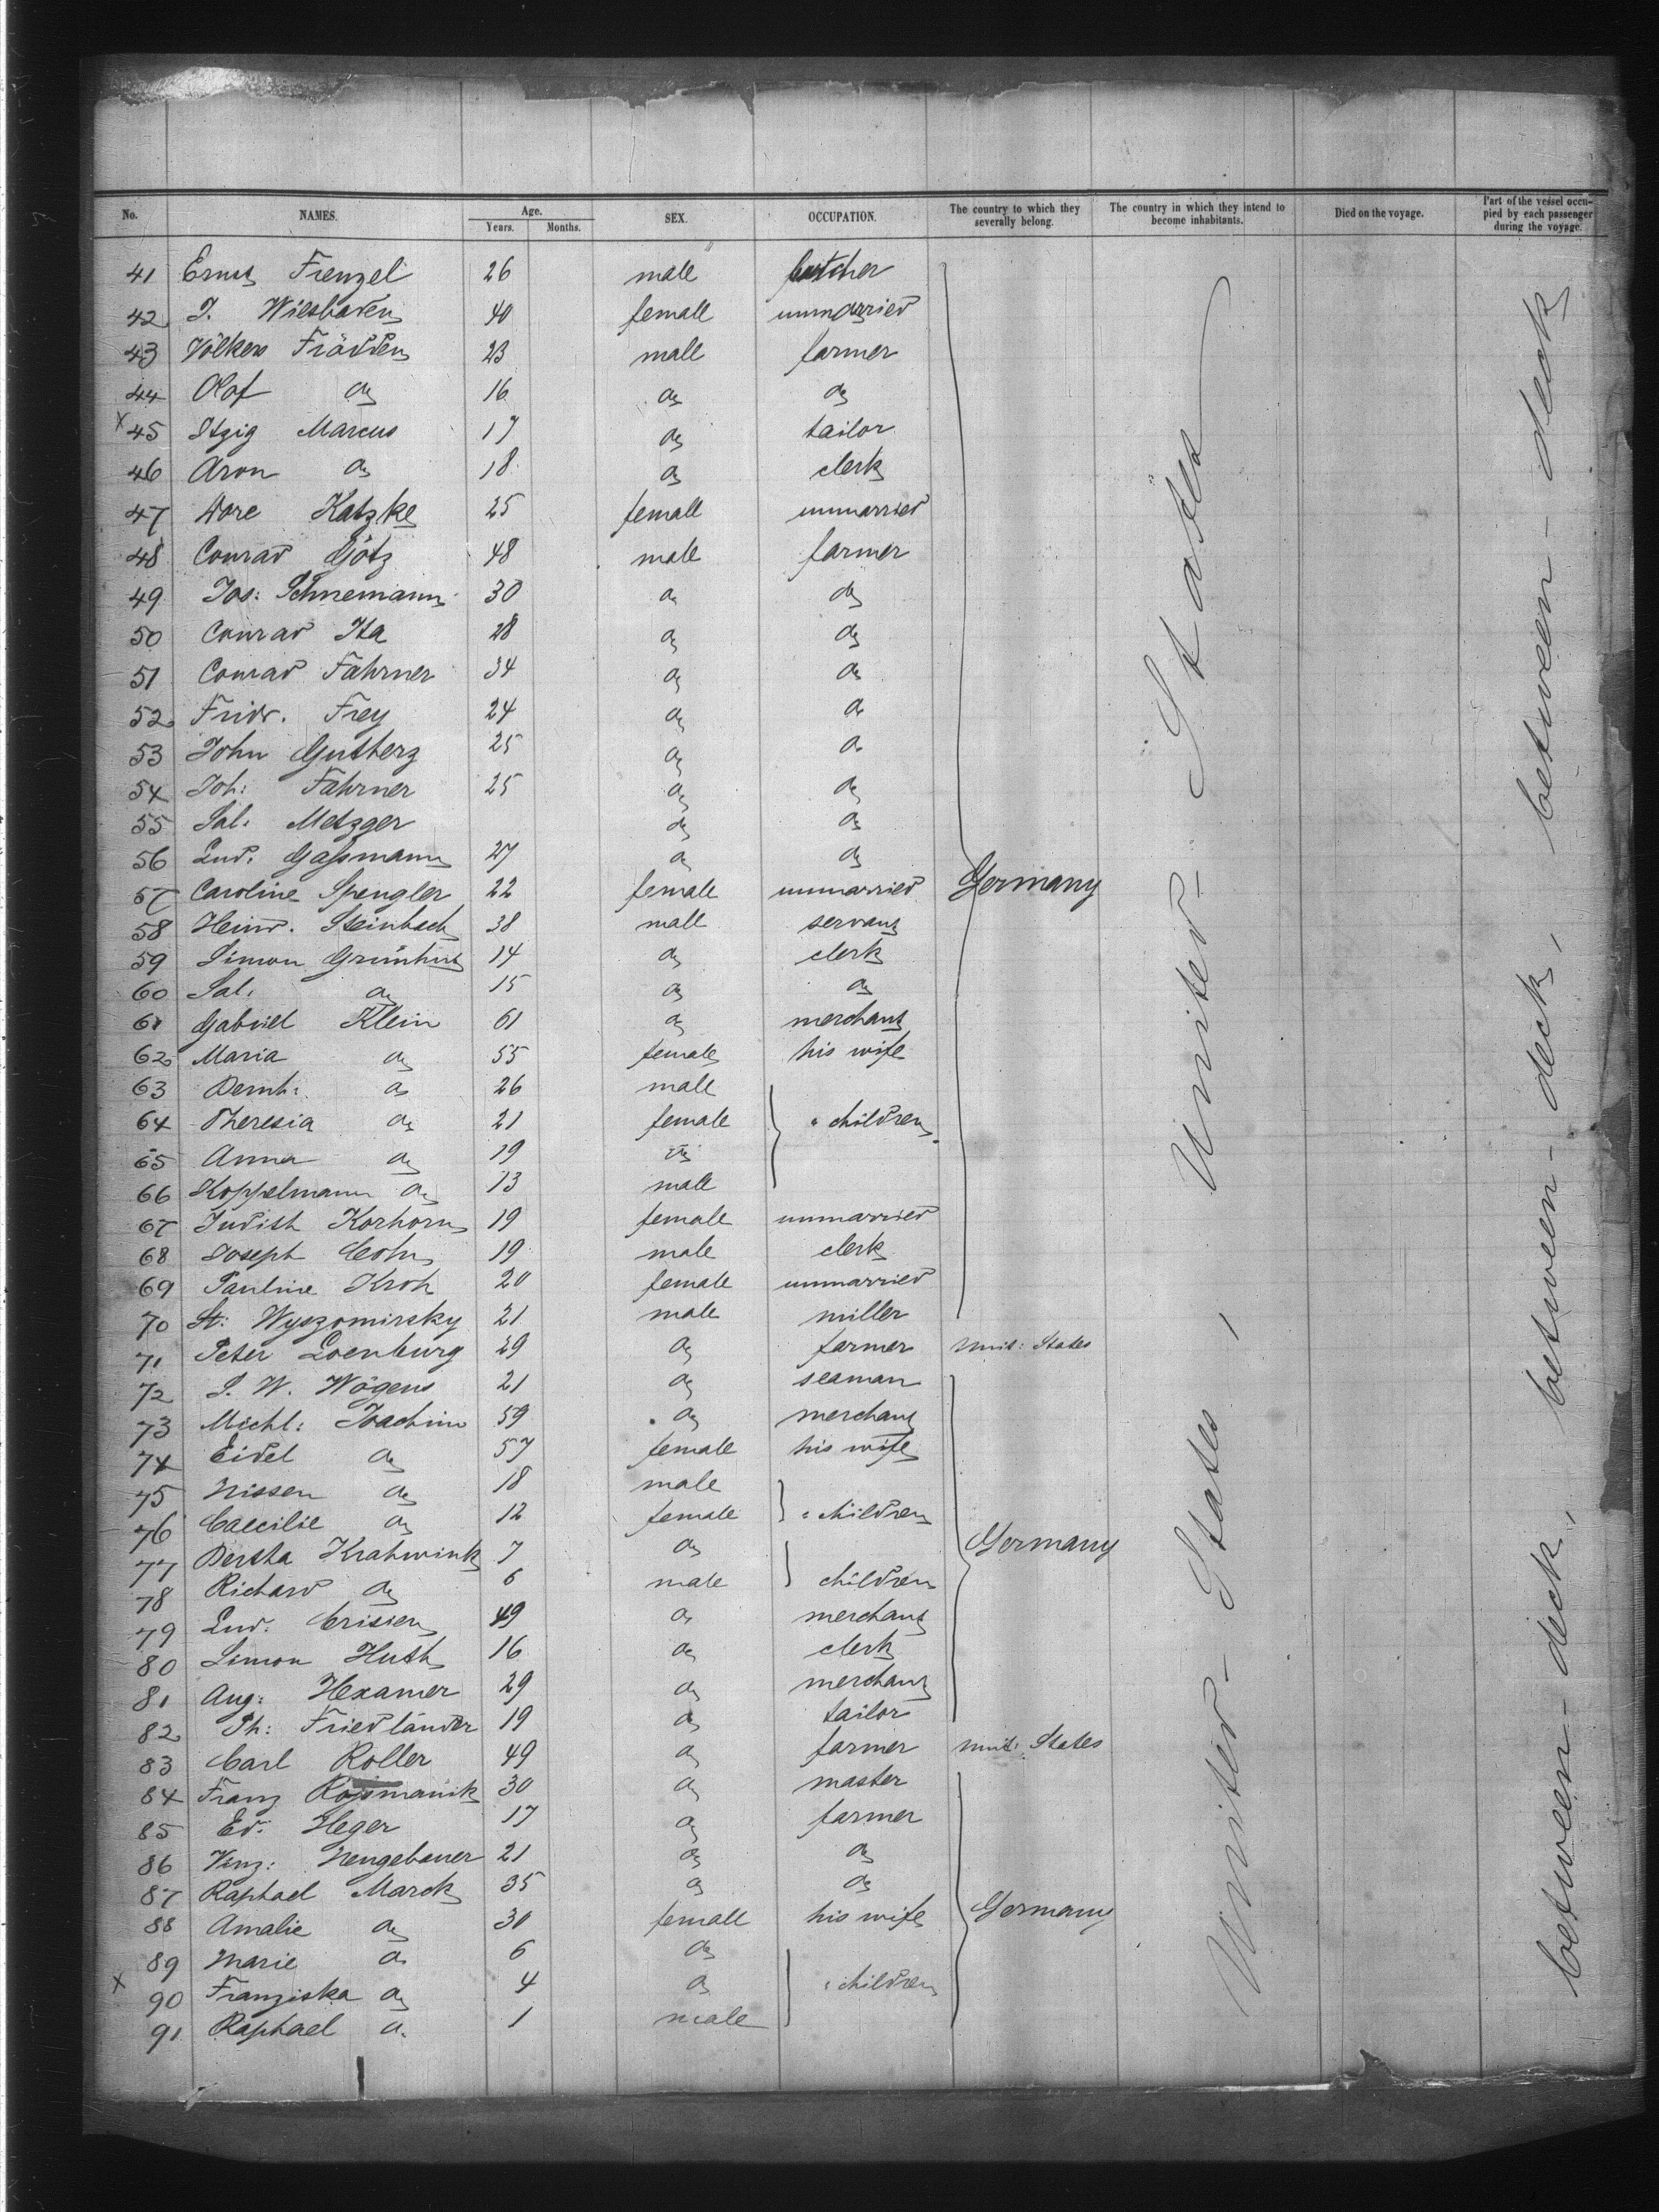 No. NAMES. Age. Years. Months. SEX. OCCUPATION. The country to which they severally belong. The country in which they intend to become inhabitants. Died on the voyage. Part of the vessel occupied by each passenger during the voyage.
41 Ernst Frenzel 26 male butcher
42 J. Wiesbaden 40 female unmarried
43 Völkers Frödden 23 male farmer
44 Olof do 16 do do
x 45 Itzig Marcus 17 do tailor
46 Aron do 18 do clerk
47 Dore Katzke 25 female unmarried
48 Conrad Götz 48 male farmer
49 Jos: Schnemann 30 do do
50 Conrad Ita 28 do do
51 Conrad Fahrner 34 do do
52 Fridr. Frey 24 do do
53 John Gutherz 25 do do
54 Joh: Fahrner 25 do do
55 Sal: Metzger do do
56 Lud: Gaßmann 27 do do
57 Caroline Spengler 22 female unmarried Germany
58 Heinr. Steinbach 38 male servant
59 Simon Grünhut 14 do clerk
60 Sal: do 15 do do
61 Gabriel Klein 61 do merchant
62 Maria do 55 female his wife
63 Bernh: do 26 male
64 Theresia do 21 female " children
65 Anna do 19 do
66 Koppelmann do 13 male
67 Judith Korhorn 19 female unmarried
68 Joseph Cohn 19 male clerk
69 Pauline Kroh 20 female unmarried
70 St: Wyszomirsky 21 male miller
71 Peter Loenburg 29 do farmer Unit: States
72 S. W. Wögens 21 do seaman
73 Michl: Joachim 59 do merchant
74 Eidel do 57 female his wife
75 Nissen do 18 male
76 Caecilie do 12 female " children
77 Bertha Krahwink 7 do Germany
78 Richard do 6 male children
79 Lud: Crisien 49 do merchant
80 Simon Huth 16 do clerk
81 Aug: Hexamer 29 do merchant
82 Th: Friedländer 19 do tailor
83 Carl Roller 49 do farmer Unit: States
84 Franz Roßmanik 30 do master
85 Ed. Heger 17 do farmer
86 Vinz: Nengebauer 21 do do
87 Raphael Marck 35 do do
88 Amalie do 30 female his wife Germany
89 Marie do 6 do
x 90 Franziska do 4 do " children
91 Raphael do 1 male
United- States, United- States
between- deck, between- deck, between- deck